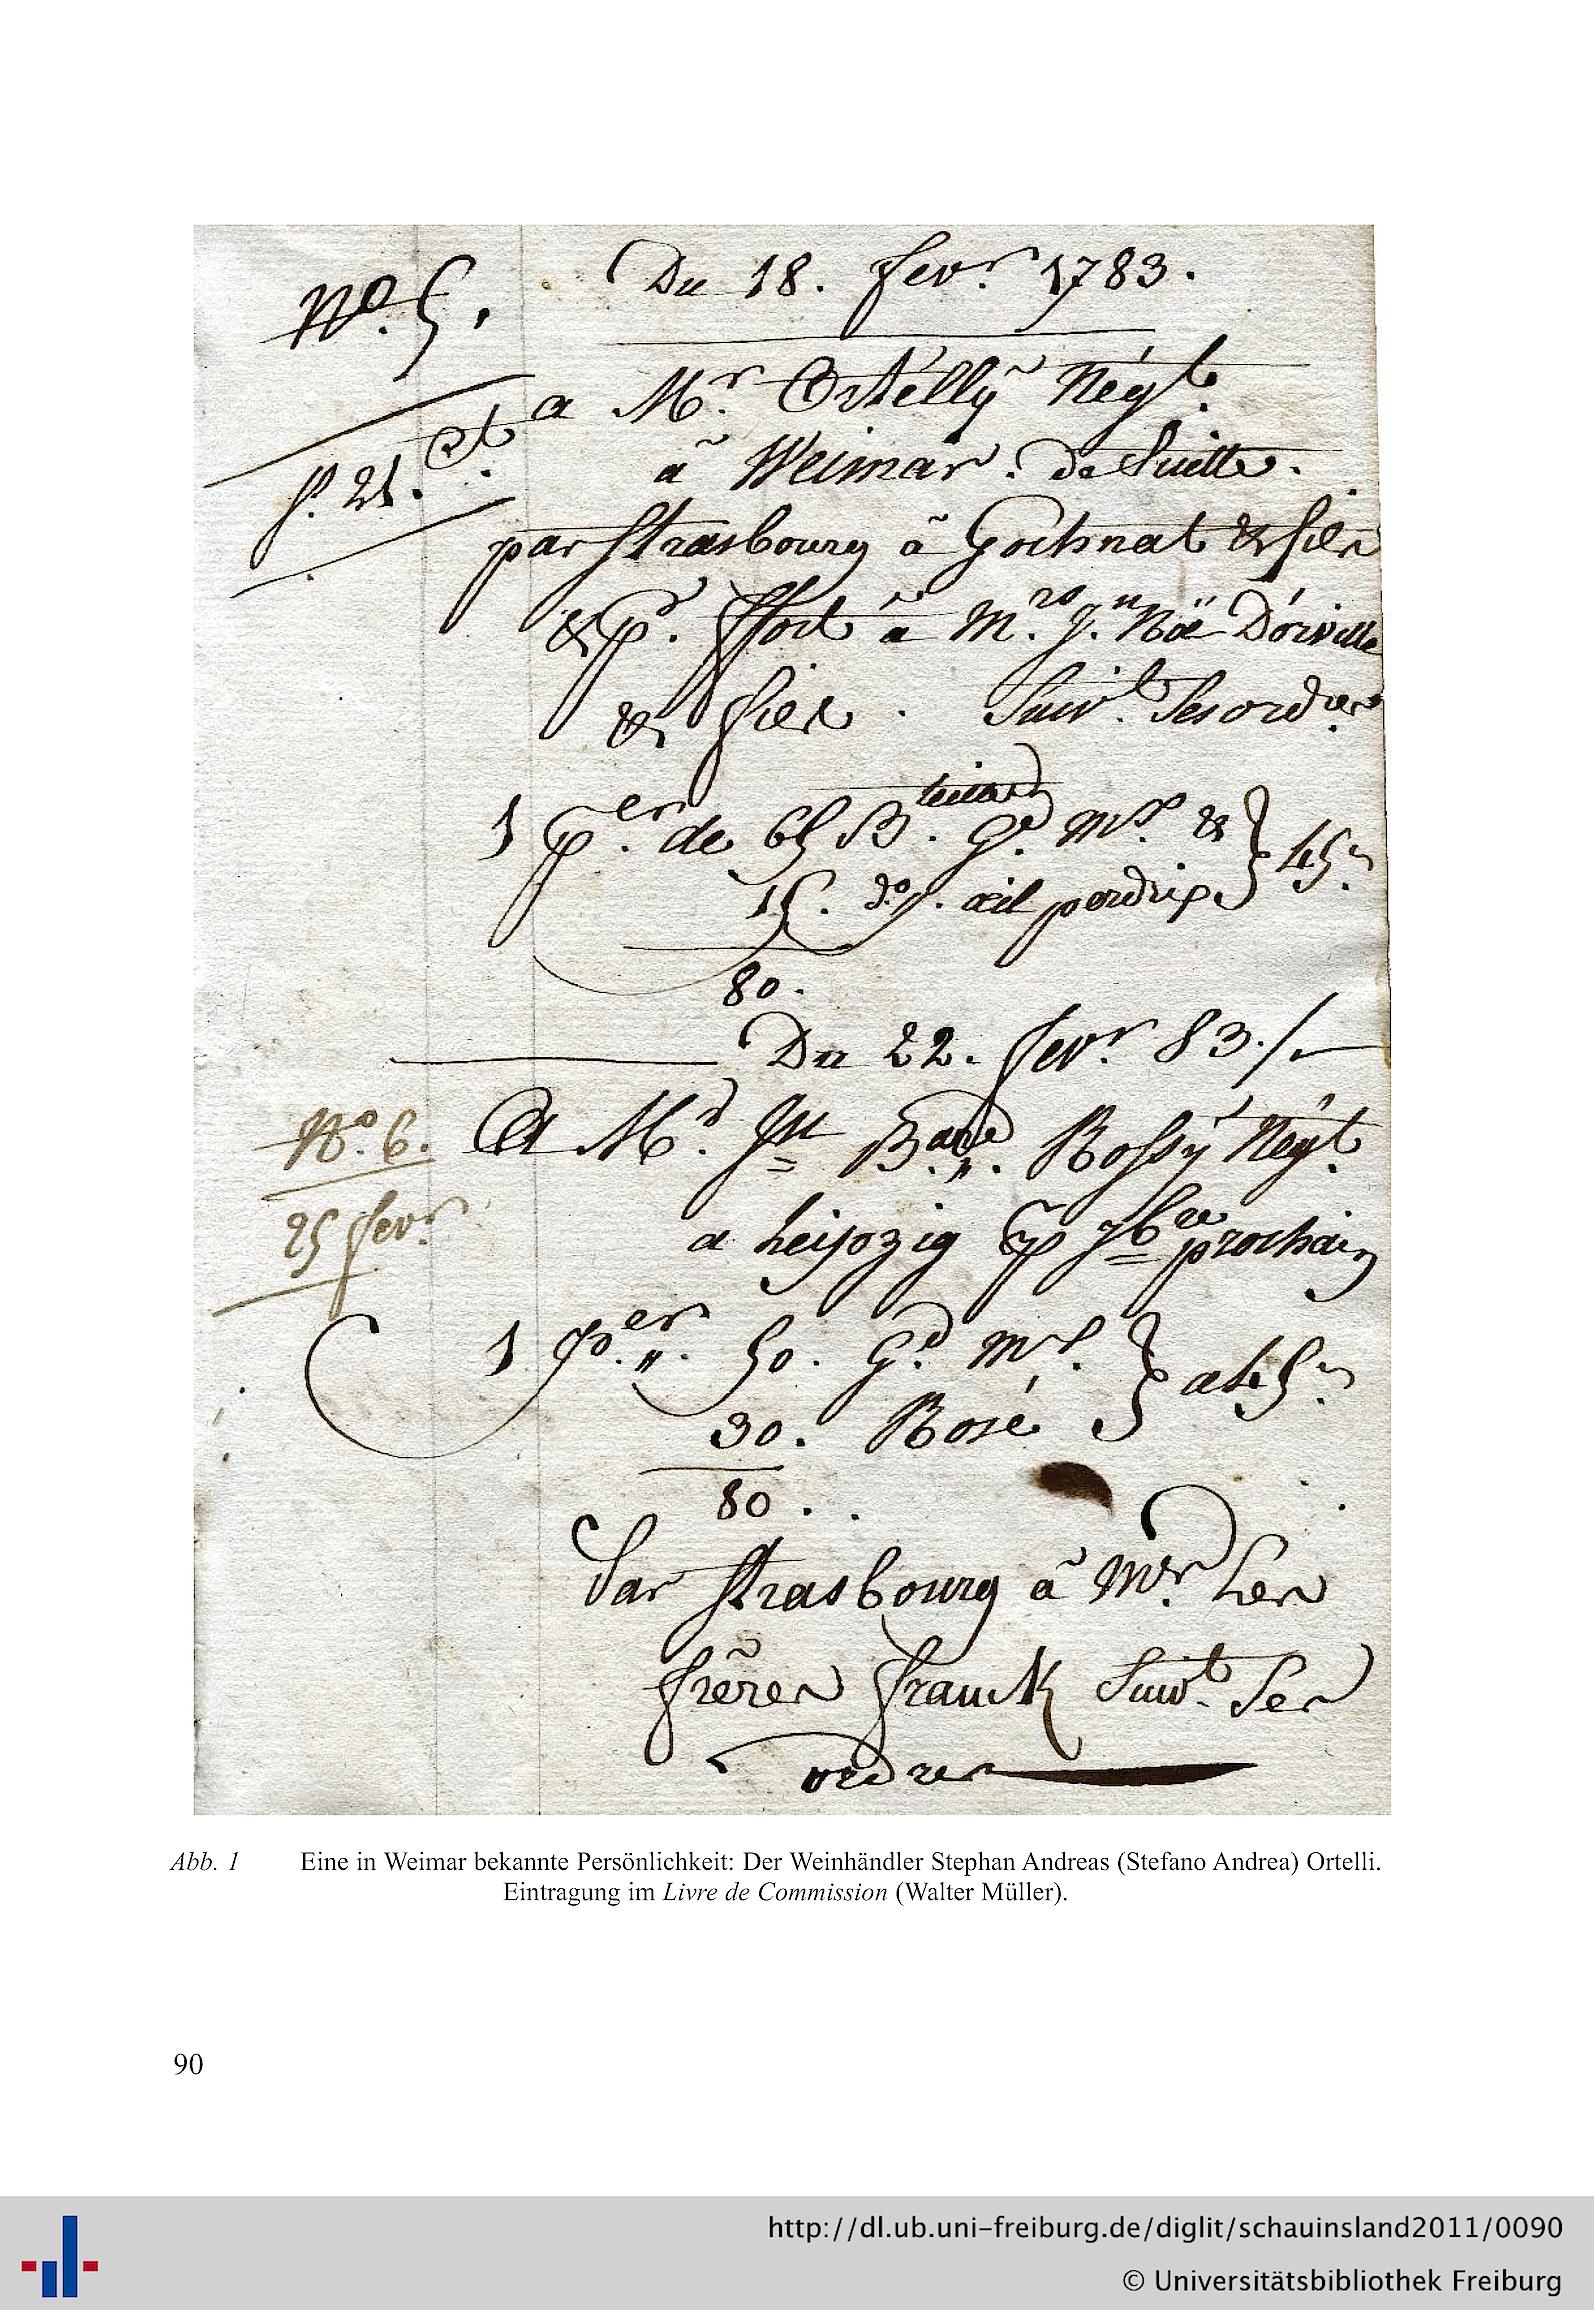 Du 18. fevr. 1783.
No. 5.
a Mr. Ortélly Négt.
à Weimar. de Suitte.
p. 21. Ct.
par Strasbourg à Gochnat & fils
& pr. ffort à Mrs. Jn. Noë D'orville
& fils. Suivt. Ses ordres.
1 per. de 65 Bteilles Gd. Ms. &
15. do. œil perdrix } 45s.
80.
Du 22. fevr. 83./.
No. 6. A Mr. Jn Bard. Rossy Négt.
a Leipzig p 7bre prochain
25 fevr.
1 Per. 50. Gd. Ms. } a 45s.
30. Rosé
80.
Par Strasbourg à Mrs. Les
frères franck Suivt. Ses
ordres
Abb. 1 Eine in Weimar bekannte Persönlichkeit: Der Weinhändler Stephan Andreas (Stefano Andrea) Ortelli.
Eintragung im Livre de Commission (Walter Müller).
90
http://dl.ub.uni-freiburg.de/diglit/schauinsland2011/0090
© Universitätsbibliothek Freiburg